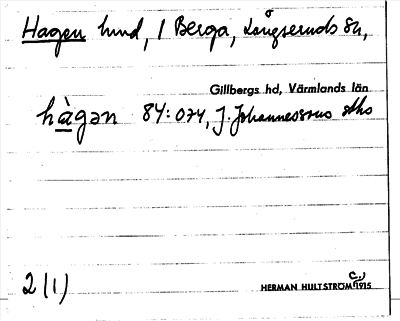 Hagen hmd, 1 Berga, Långseruds sn,
Gillbergs hd, Värmlands län
hàgən 84:074, J. Johannessons
2 (1)
HERMAN HULTSTRÖM 1915